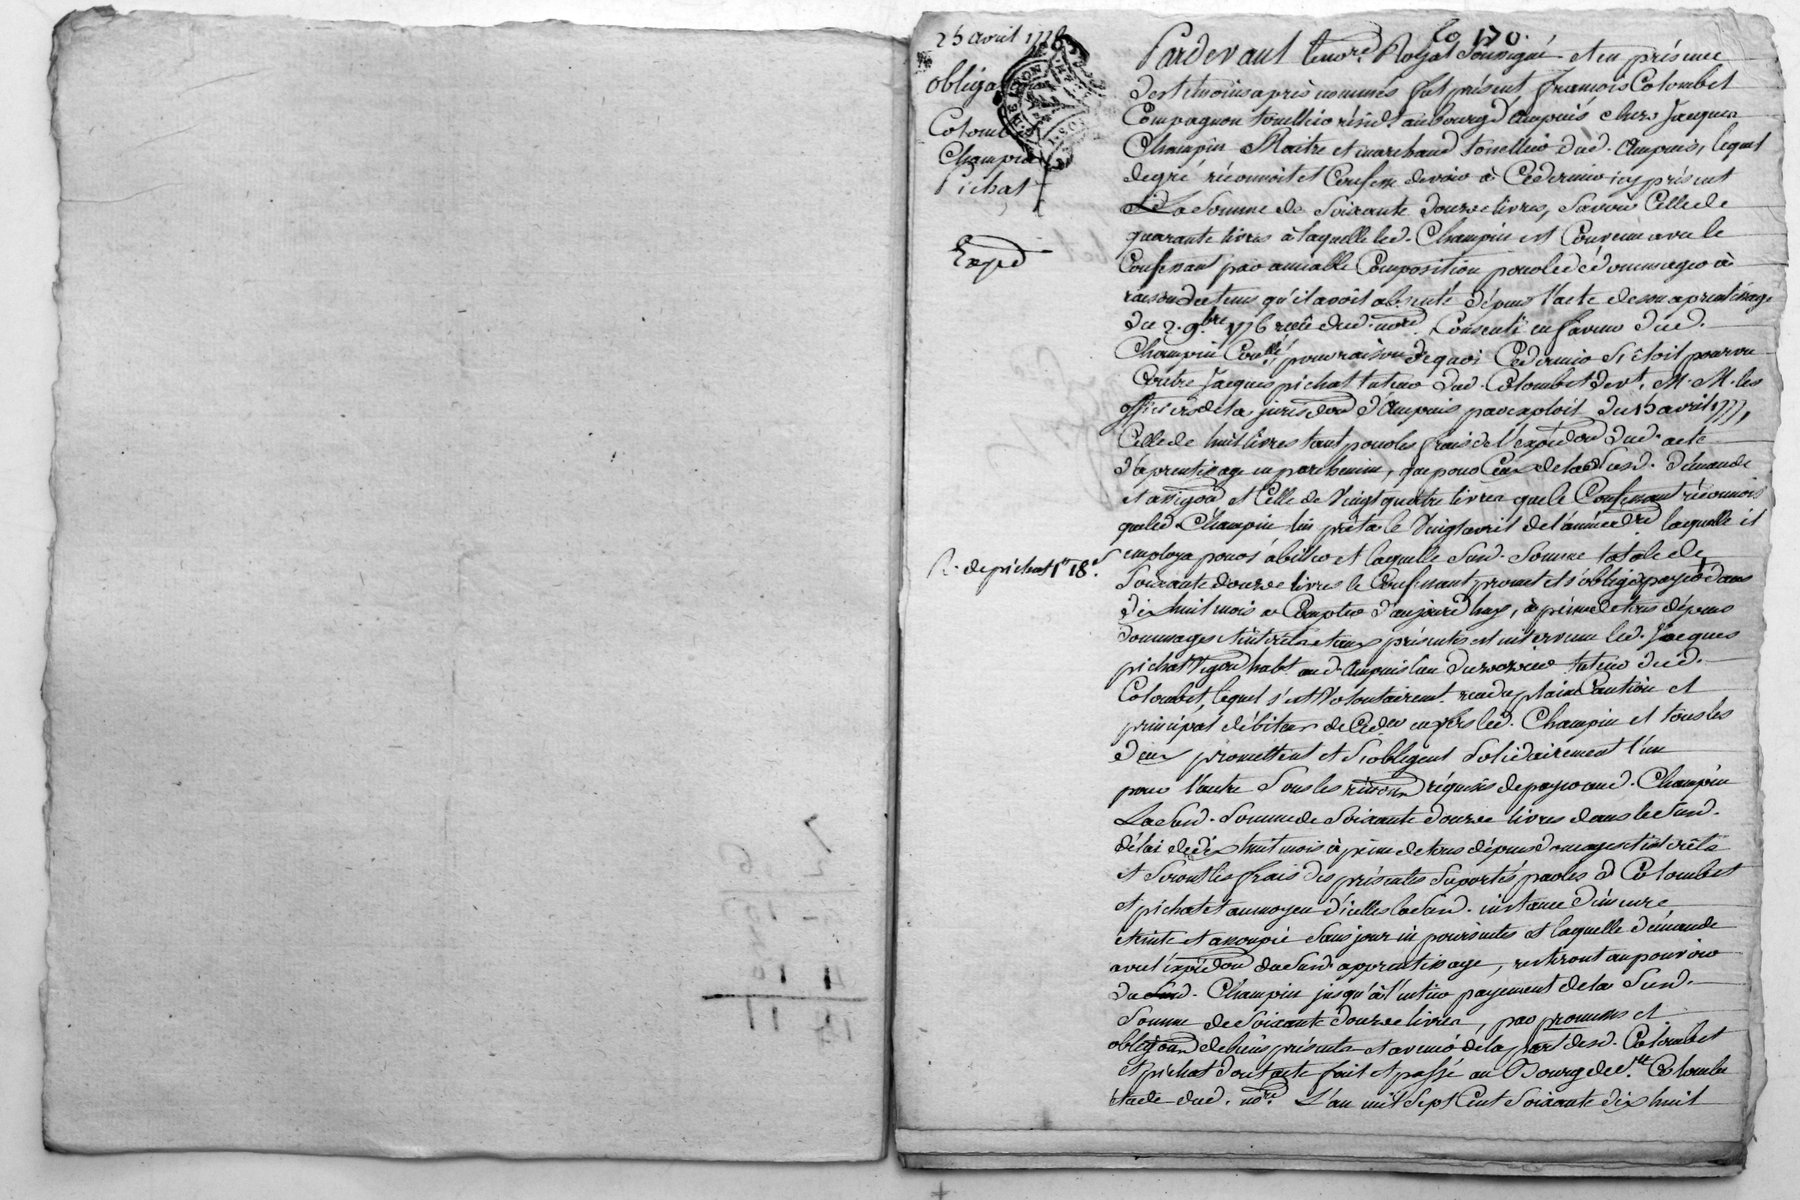 25 avril 1778
obliga
Colom
Champin
Pichat
Exped
R. de pichat 1# 18s
Co 170.
Pardevant le nore. Royal soussigné et en présence
des témoins après nommés fut présent françois Colombet
Compagnon tonellier résidt. au bourg d'ampuis chez Jacques
Champin Maitre et marchand tonellier dud. Ampuis, lequel
de gré réconnoit et Confesse devoir à Cedernier icy présent
La somme de soixante douze livres, savoir Celle de
quarante livres à laquelle led. Champin est Convenu avec le
Confessant par amiable Composition pour les dédommager à
raison du tems qu'il avoit absenté dépuis l'acte de son aprentissage
du 2. 9bre 1776 reçu dud. nore. Consenti en faveur dud.
Champin pour raison de quoi Cedernier s'étoit pourvu
Contre Jacques pichat tuteur dud. Colombet devt. M. M. les
officiers de la jurisdon d'Ampuis par exploit du 15 avril 1777,
Celle de huit livres tant pour les frais de l'expédon dud. acte
d'aprentissage en parchemin, que pour Ceux de lad. demande
et assigon et Celle de Vingt quatre livres que le Confessant réconnois
que led Champin lui prêta le Vingt avril de l'année dre laquelle il
employa pour s'abiller et laquelle susd. somme totale de
soixante douze livres le Confessant promet et s'oblige payer dans
dix huit mois a Compter d'aujourd'huy, à peine de tous dépens
dommages et intérêts et aux présentes est intervenu led. Jacques
pichat Vigon habt. aud. Ampuis tuteur dud.
Colombet, lequel s'est Volontairemt. rendu plain Caution et
principal débiteur de Ceder envers led. Champin et tous les
deux promettent et s'obligent solidairement l'un
pour l'autre sous les rénons réquises de payer aud. Champin
La susd. somme de soixante douze livres dans le susd.
délai de dix huit mois à peine de tous dépens domages et intérêts
et seront les frais des présentes suportés par lesd Colombet
et pichat et au moyen d'icelles la susd. instance d'meure
éteinte et assoupie sans jour ni poursuites et laquelle démande
avec l'expédon du susd. apprentissage, resteront au pouvoir
du susd. Champin jusqu'à l'entier payement de la susd.
somme de soixante douze livres, par promesses et
obligaon de biens présents et avenir de la part desd. Colombet
et pichat dont acte fait et passé au Bourg de Ste Colombe
étude dud. nore. L'an mil sept Cent soixante dix huit